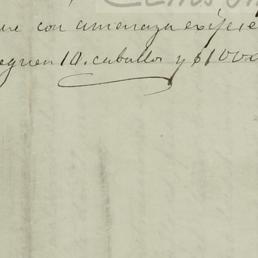 ue con amenaza exijie
eguen 10. caballos y $1000